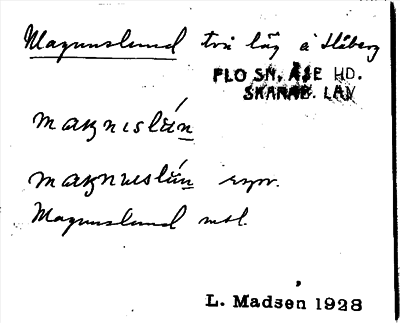 Magnuslund två läg å Håberg
FLO SN. ÅSE HD.
SKARAB. LÄN
maꞬnislún
maꞬnuslún
Magnuslund mtl.
L. Madsen 1928